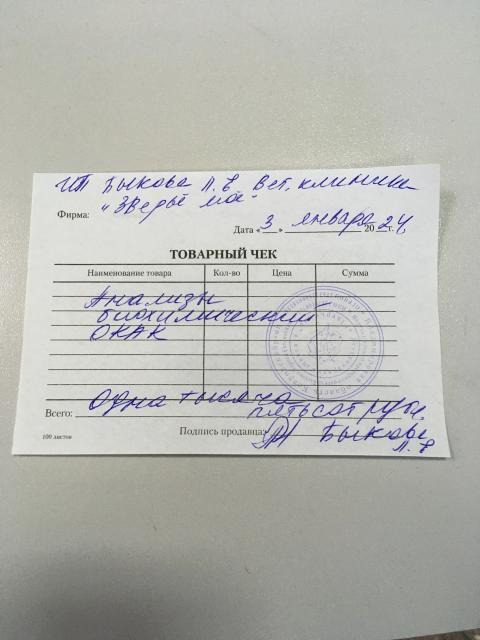 ИП Быкова Л. В. Вет. клиника
Фирма: "Зверьё моё"
Дата « 3 » января 20 24 г.
ТОВАРНЫЙ ЧЕК
Наименование товара Кол-во Цена Сумма
Анализы
биохимический
ОКАК
Всего: Одна тысяча пятьсот руб.
100 листов Подпись продавца: Быкова
Л. В